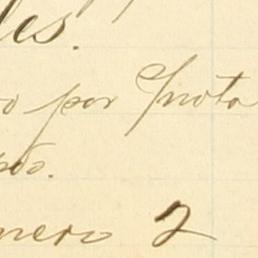 les.
o por Inota
do.
mero 2